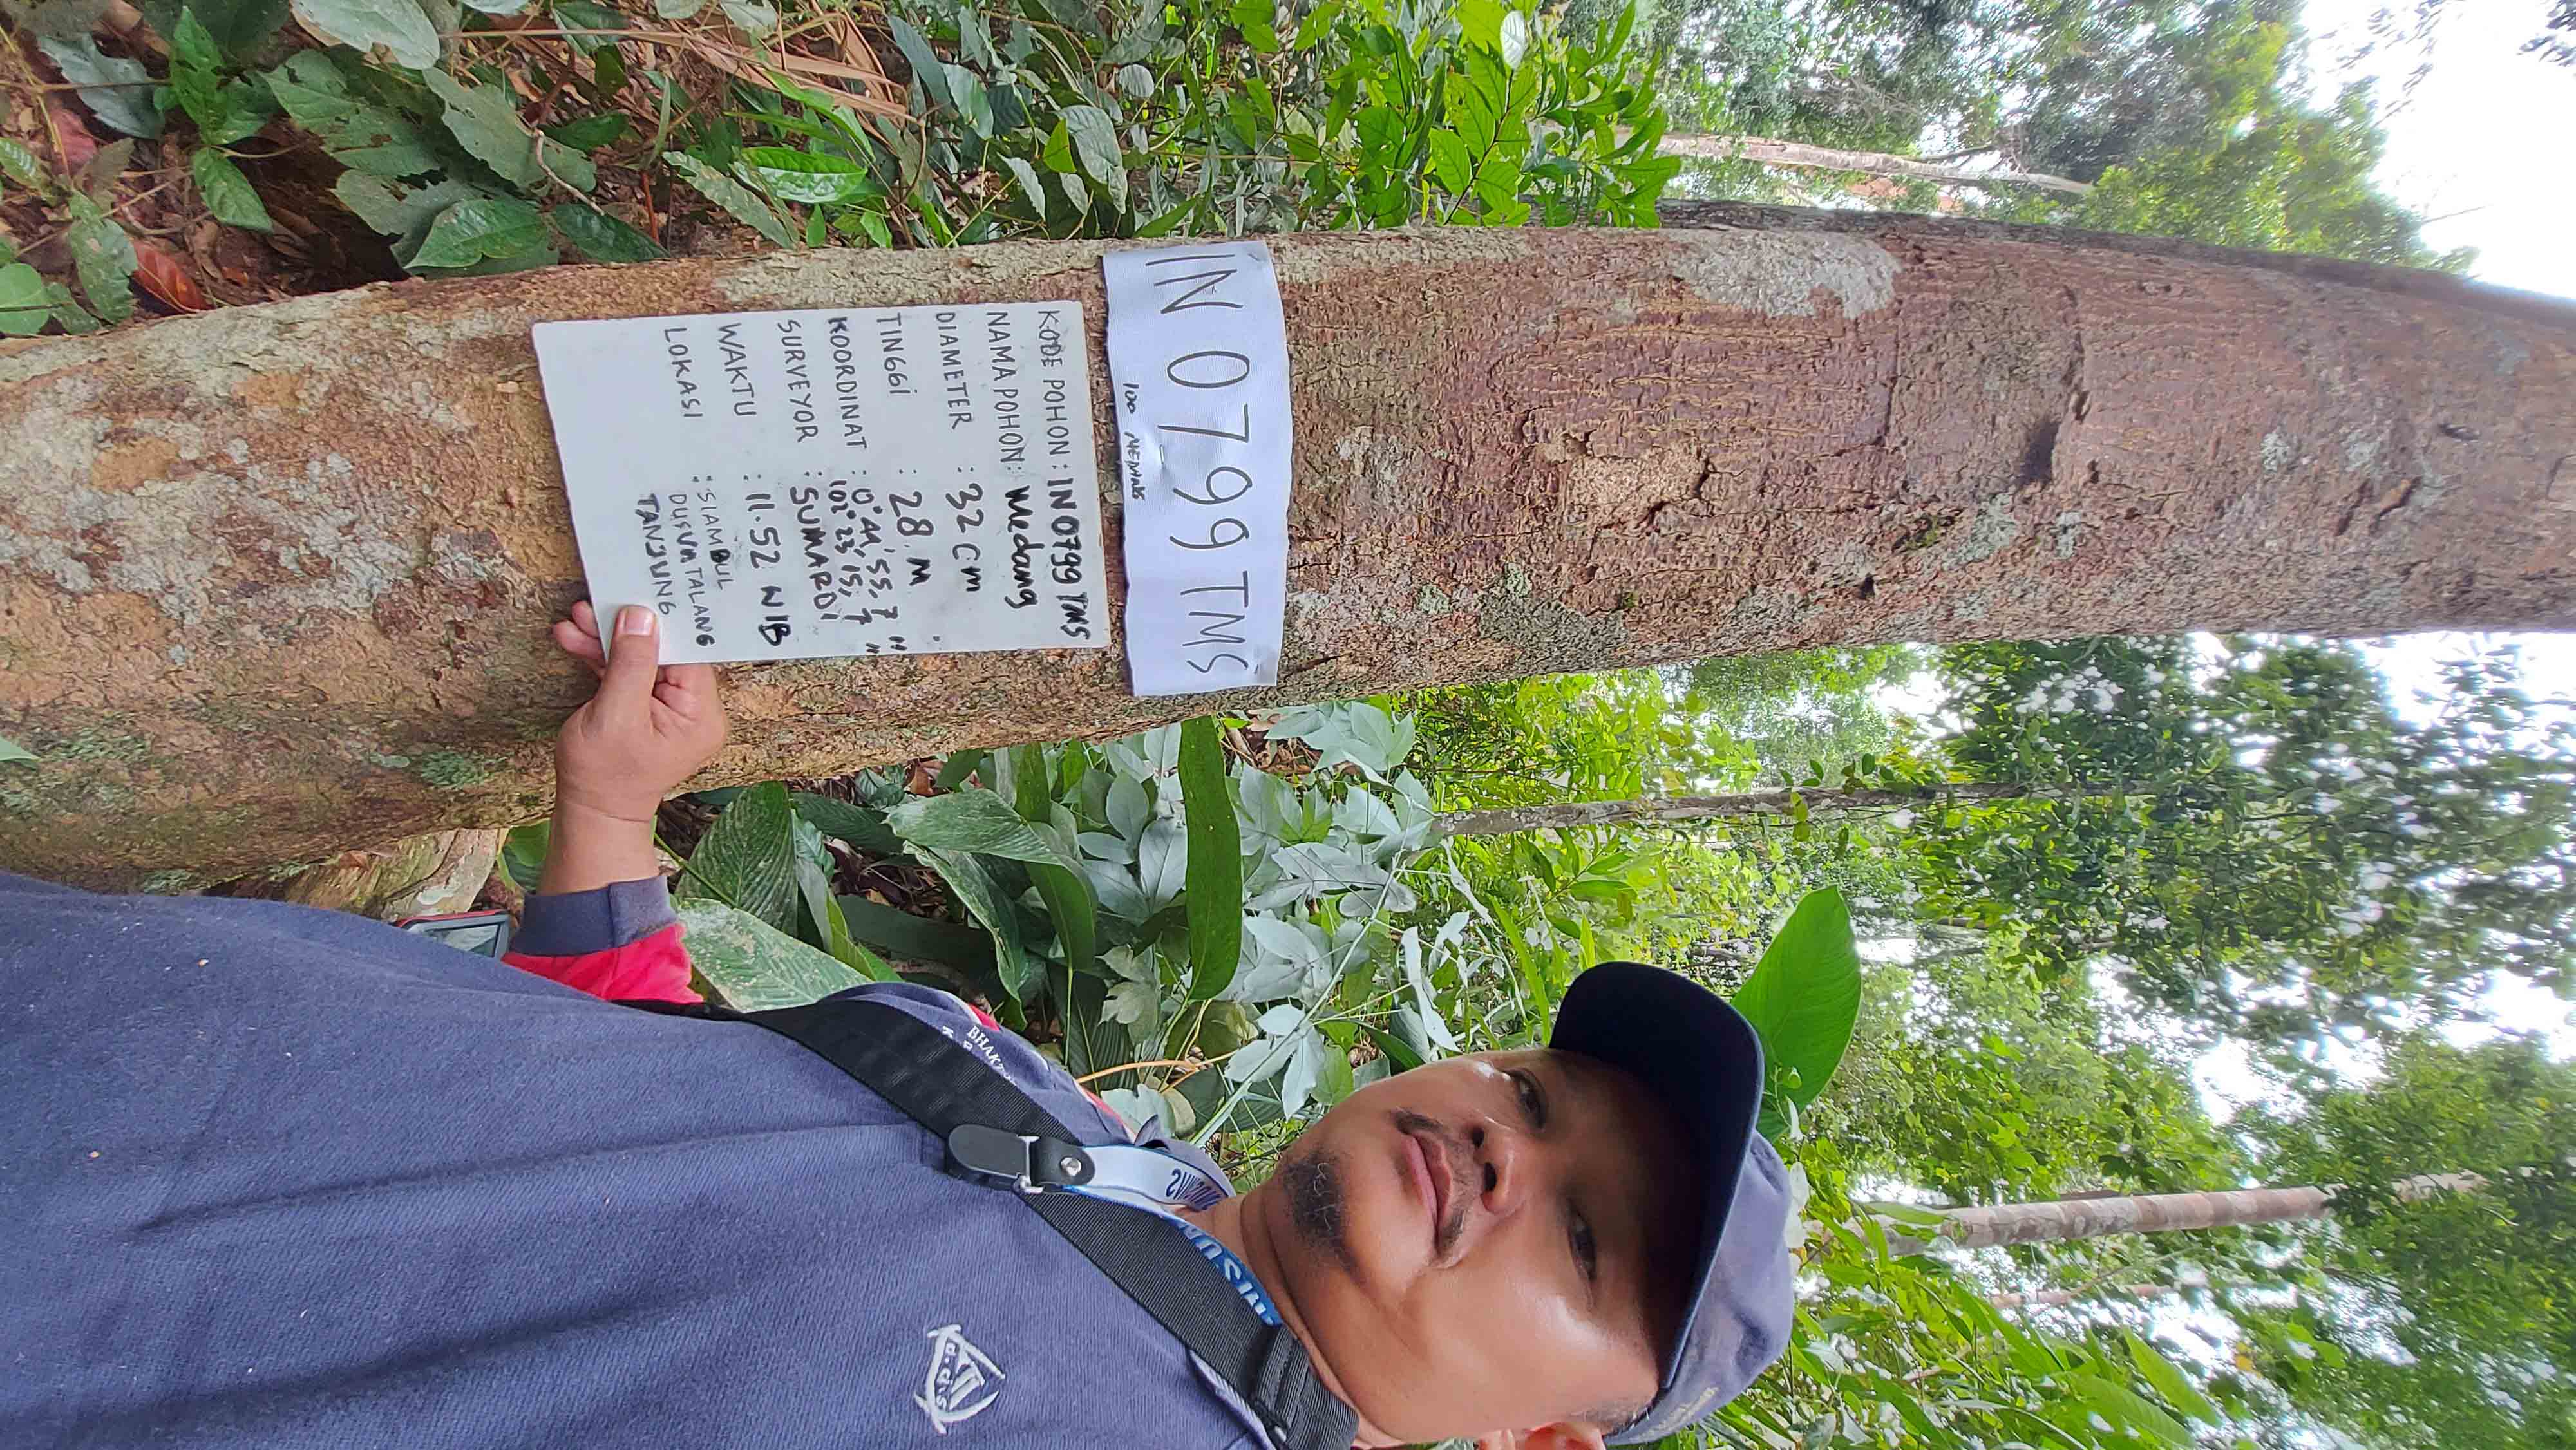 IN 0799 TMS
100 MEDANG
KODE POHON : IN 0799 TMS
NAMA POHON : Medang
DIAMETER : 32 cm
TINGGI : 28 M
KOORDINAT : 0° 44' 55.7"
102° 23' 15.7"
SURVEYOR : SUMARDI
WAKTU : 11.52 WIB
LOKASI : SIAMBUL
DUSUN TALANG
TANJUNG